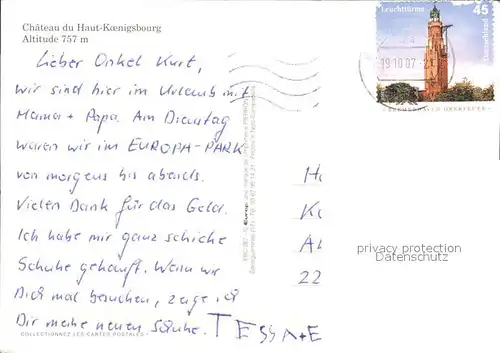 Château du Haut-Kœnigsbourg
Altitude 757 m
Lieber Onkel Kurt,
wir sind hier im Urlaub mit
Mama + Papa. Am Dienstag
waren wir im EUROPA-PARK
von morgens bis abends.
Vielen Dank für das Geld.
Ich habe mir ganz schicke
Schuhe gekauft. Wenn wir
Dich mal besuchen, zeige ich
Dir meine neuen Schuhe. TESSA+E
COLLECTIONNEZ LES CARTES POSTALES
Leuchttürme 45
Deutschland
19.10.07
Ha
Ka
A
22
privacy protection
Datenschutz